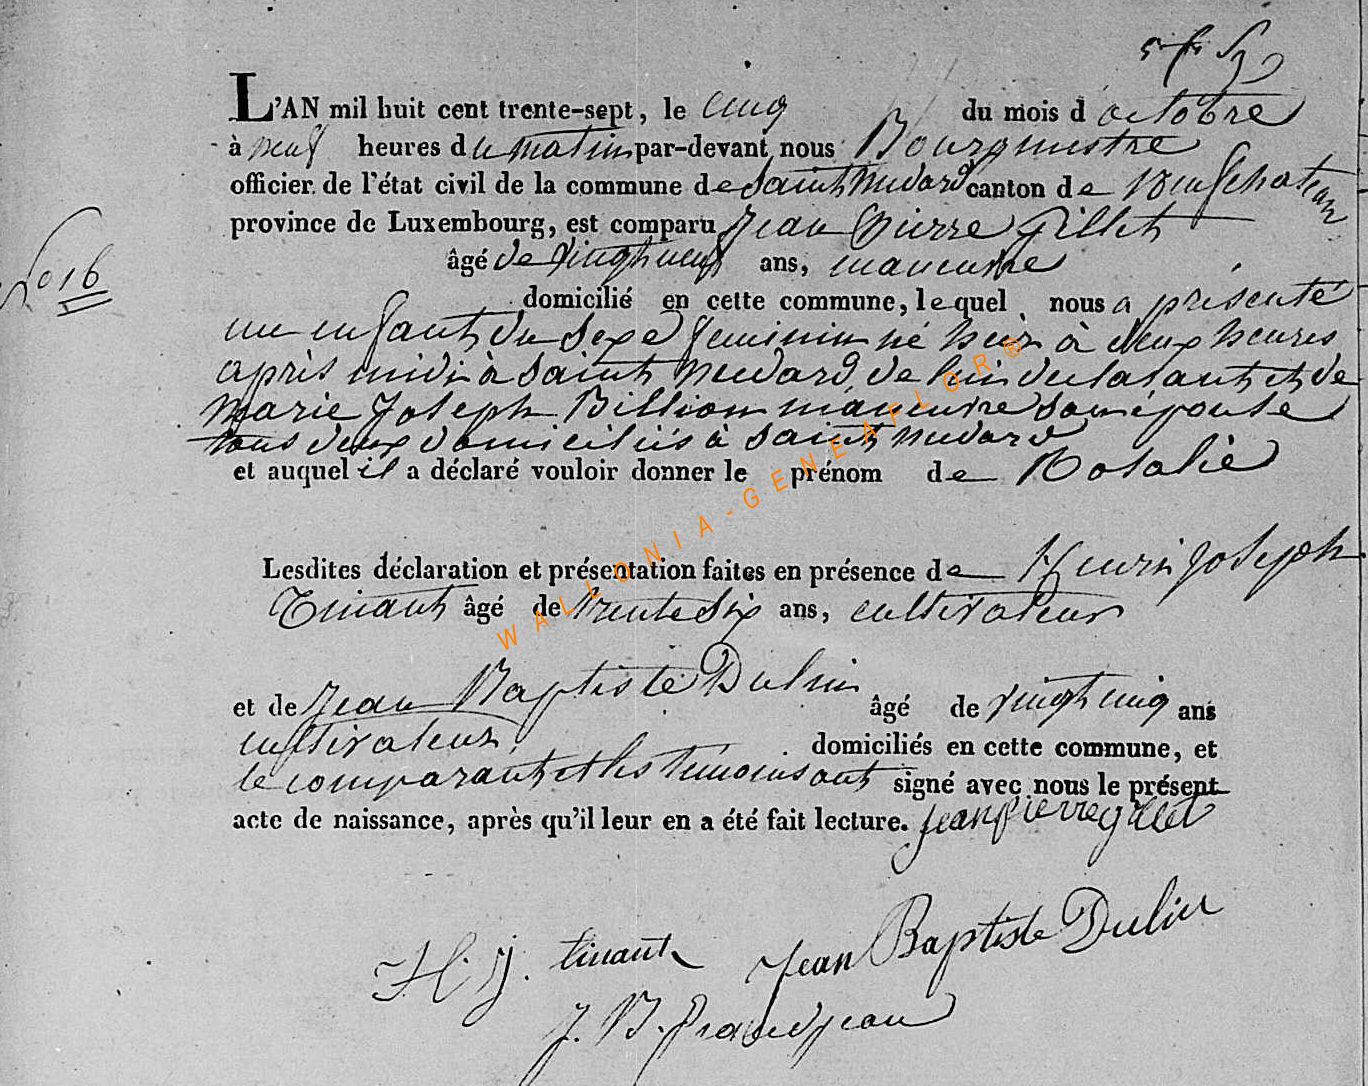 L'AN mil huit cent trente-sept, le cinq du mois d'octobre
à neuf heures du matin par-devant nous Bourgmestre
officier de l'état civil de la commune de Saint Médard canton de Neufchateau
province de Luxembourg, est comparu Jean Pierre Gillet
âgé de vingt neuf ans, manœuvre
domicilié en cette commune, lequel nous a présenté
un enfant du sexe feminin né hier à deux heures
après midi à Saint Médard, de lui déclarant et de
Marie Joseph Billion manœuvre son épouse
tous deux domiciliés à Saint Médard
et auquel il a déclaré vouloir donner le prénom de Rosalie
No 16
Lesdites déclaration et présentation faites en présence de Henri Joseph
Tinant âgé de trente six ans, cultivateur
et de Jean Baptiste Dulieu âgé de vingt cinq ans
cultivateur, domiciliés en cette commune, et
le comparant et les témoins ont signé avec nous le présent
acte de naissance, après qu'il leur en a été fait lecture. Jean pierre gillet
H. J. tinant Jean Baptiste Dulieu
J. B. Grandjean
WALLONIA-GENEAFLOR®